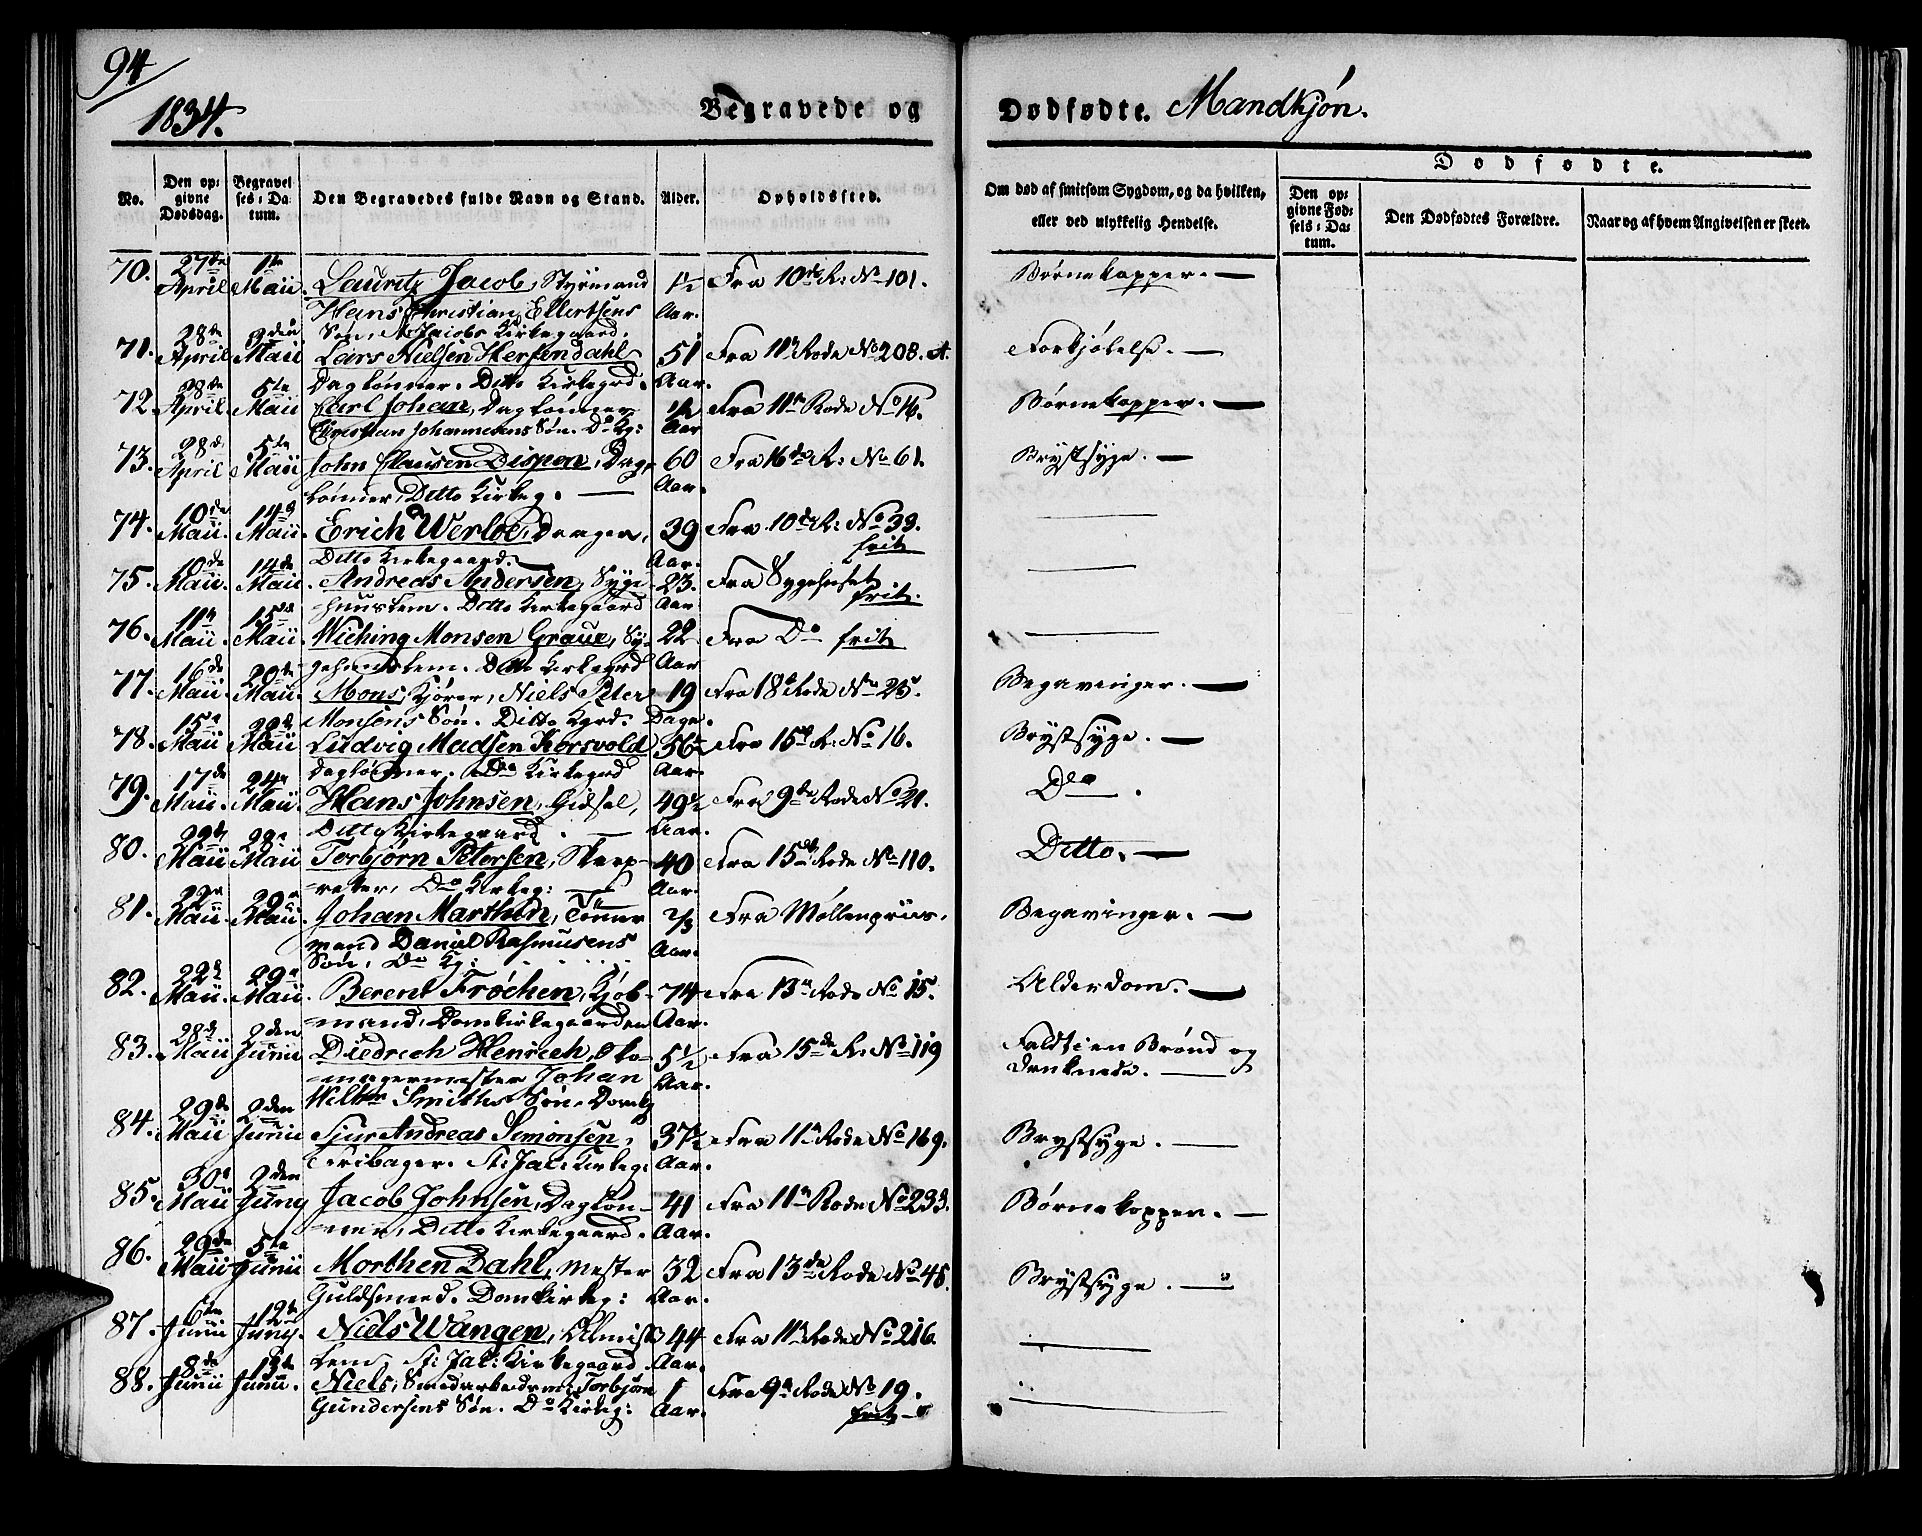 94
1834.
Begravede og Dødfødte. Mandkjøn.
No.
Den opgivne Dødsdag.
Begravelses-Datum.
Den Begravedes fulde Navn og Stand.
Alder.
Opholdssted.
Om død af smitsom Sygdom, og da hvilken, eller ved ulykkelig Hendelse.
Dødfødte.
Den opgivne Fødsels-Datum.
Den Dødfødtes Forældre.
Naar og af hvem Angivelsen er skeet.
70. 27de April 1te Maii. Lauritz Jacob, Styrmand 1½ Fra 10de R: No 101. Børnekopper. —
Hans Christian Ellertsens Aar.
Søn, St Jacobs Kirkegaard.
71. 28de April 3den Maii Lars Nielsen Herfendahl 51 Fra 11te Rode No 208. A. Forkjølelse. —
Dagtønner. Ditto Kirkegrd. Aar.
72. 28de April 5te Maii Carl Johan, Dagtønner ½ Fra 11te Rode No 16. Børnekopper. —
Christian Johannesens Søn. Do Kg: Aar
73. 28de April 5te Maii John Clausen Dispon, Dag- 60 Fra 16de R: No 61. Brystsyge. —
lønner, Ditto Kirkeg. — Aar.
74. 10de Maii. 14de Maii. Erich Werloe, Drager, 39 Fra 10de R: No 33. —
Ditto Kirkegaard. Aar. frit
75. 10de Maii. 14de Maii. Andreas Andersen, Syge- 23. Fra Sygehuset —
huuslem. Ditto Kirkegaard Aar frit.
76. 11te Maii. 15de Maii. Wiching Monsen Graue, Sy- 22 Fra Do frit —
gehuuslem. Ditto Kirkegrd Aar
77. 16de Maii. 20de Maii. Mons, Kjører, Niels Peter 19 Fra 18de Rode No 25. Begavinger. —
Monsens Søn. Ditto Kgrd. Dage.
78. 15de Maii 22de Maii Ludvig Madsen Korsvold 56 Fra 15de R: No 16. Brystsyge. —
Dagtønner. Do Kirkegrd Aar.
79. 17de Maii. 24de Maii. Hans Johnsen, Gidsel, 49½ Fra 9de Rode No 21. Do .
Ditto Kirkegaard. — Aar.
80. Maii Maii Torbjørn Petersen, Skarp- 40 Fra 15de Rode No 110. Ditto. —
retter, Do Kirkeg: — Aar.
81. 22de Maii. 29de Maii. Johan Marthin, Tømmer 2/3 Fra Møllenpriis. Begavinger. —
mand Daniel Rasmusens Aar.
Søn, Do Kg:
82. 22de Maii. 29de Maii. Berent Frøchen, Kjøb- 74 Fra 13de Rode No 15. Alderdom. —
mand, Domkirkegaarden Aar.
83. 28de Maii 2den Junii Diedrich Henrich, Sko- 5½ Fra 15de R: No 119 Faldt i en Brønd og
magermester Johan Aar. druknede. —
Wilhm Smiths Søn. Domkg
84. 29de Maii 2den Junii Sjur Andreas Simonsen, 37½ Fra 11te Rode No 169. Brystsyge. —
St: Jac: Kirkeg: Aar.
85. 30te Maii 2den Juny Jacob Johnsen, Dagløn- 41 Fra 11te Rode No 233. Børnekopper. —
ner, Ditto Kirkegaard. Aar.
86. 29de Maii 5te Junii Morthen Dahl, Mester 32 Fra 13de Rode No 48. Brystsyge. —
Guldsmed. Domkirkeg: Aar.
87. 6te Junii 12te Juny. Niels Wangen, Almisse 44 Fra 11te Rode No 216. —
lem, St: Jac: Kirkegaard. Aar.
88. 8de Junii 13de Junii. Niels, Smedarbeidsm: Torbjørn 1 Fra 9de Rode No 19. —
Gundersens Søn. Do Kirkeg: Aar. frit —